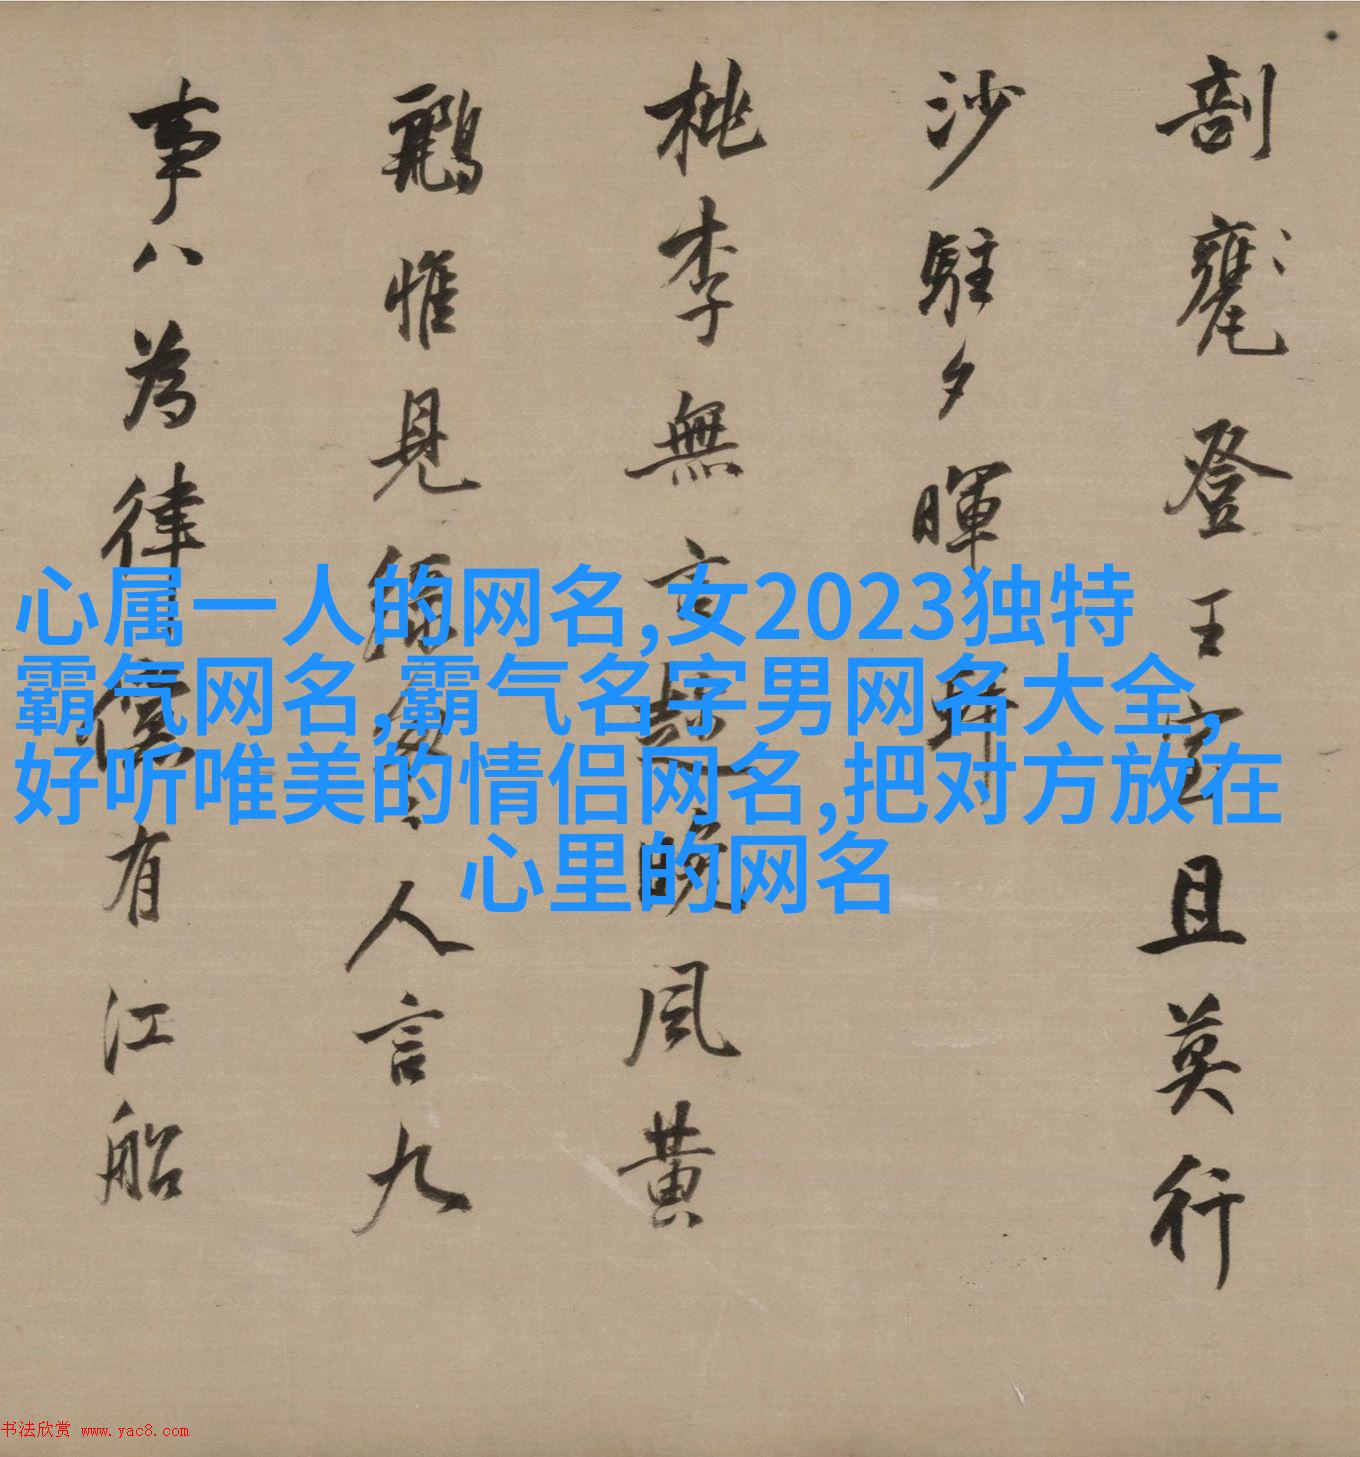 剖甕登王室且莫行
沙駐夕暉
桃李無言晚風黄
鶂惟見人言九
事八為律有江船
心属一人的网名,女2023独特
霸气网名,霸气名字男网名大全,
好听唯美的情侣网名,把对方放在
心里的网名
书法欣赏 www.yac8.com